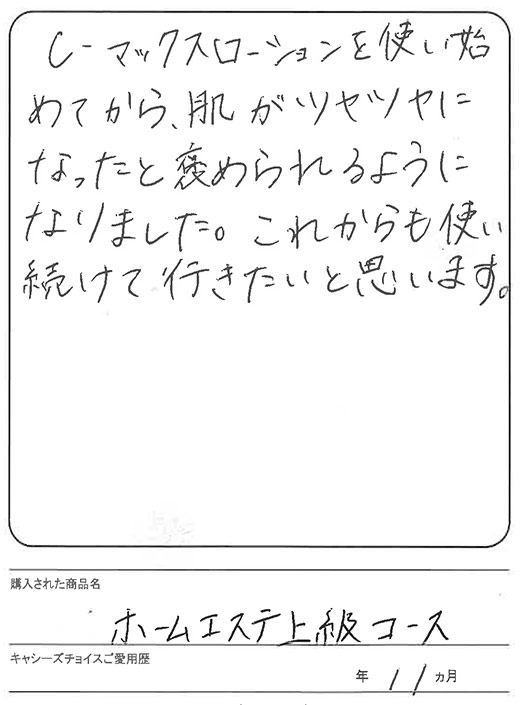 C-マックスローションを使い始
めてから、肌がツヤツヤに
なったと褒められるように
なりました。これからも使い
続けて行きたいと思います。
購入された商品名
ホームエステ上級コース
キャシーズチョイスご愛用歴
年 11 ヵ月